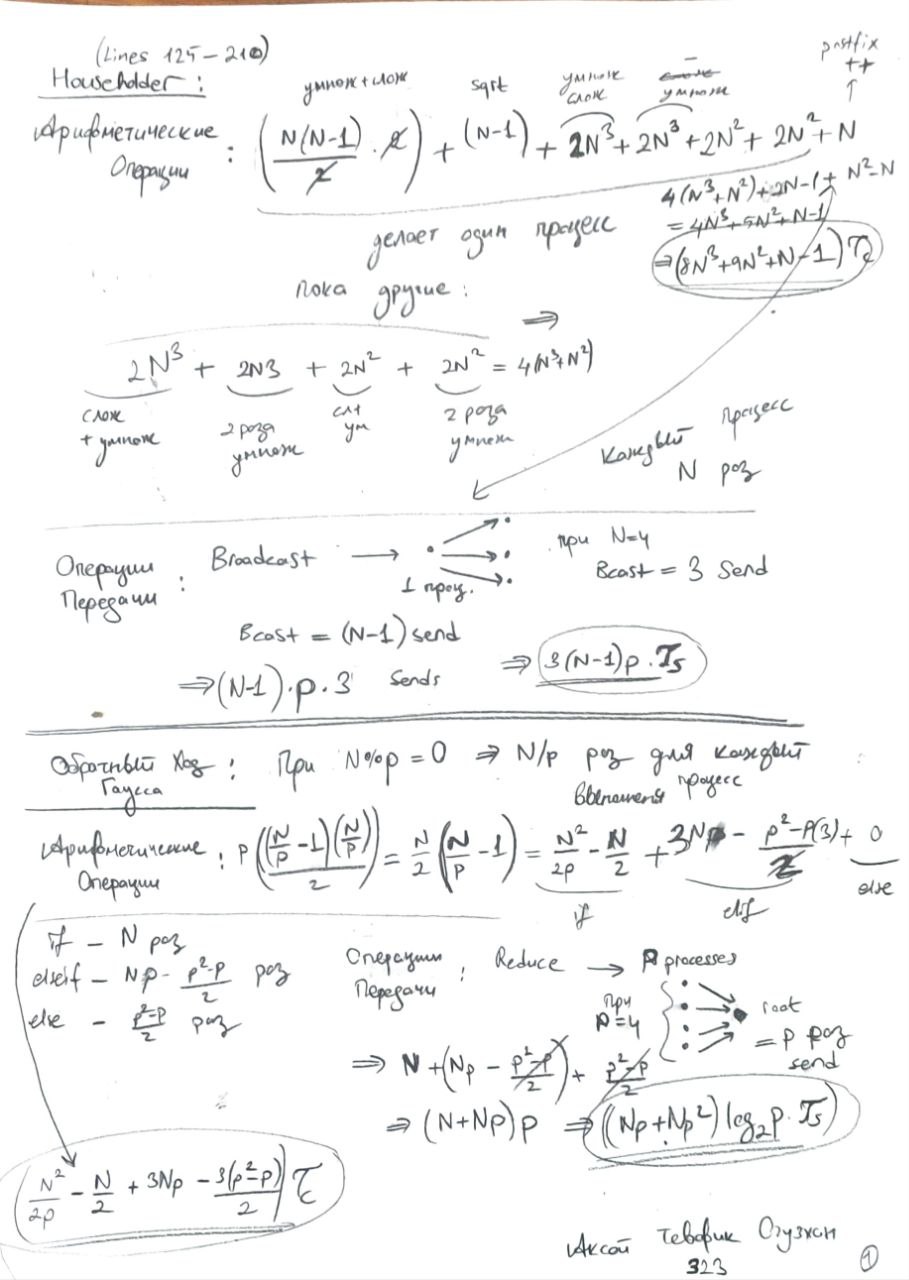 (Lines 125-210)
Householder:
умнож+слож sqrt умнож слож умнож postfix ++
Арифметические Операции : (N(N-1)/2 · 2) + (N-1) + 2N³ + 2N³ + 2N² + 2N² + N
4(N³+N²)+2N-1+N²-N
= 4N³+5N²+N-1
⇒ (8N³+9N²+N-1)τc
делает один процесс
пока другие:
⇒
2N³ + 2N3 + 2N² + 2N² = 4(N³+N²)
слож + умнож 2 роза умнож сл+ ум 2 роза умнож
Каждый процесс
N роз
Операции Передачи : Broadcast → 1 проц. при N=4
Bcast = 3 Send
Bcast = (N-1) send
⇒ (N-1)·p·3 Sends ⇒ 3(N-1)p·Ts
Обратный Ход Гаусса : При N%p = 0 ⇒ N/p роз для каждый процесс
Арифметические Операции : p((N/p -1)(N/p)/2) = N/2 (N/p -1) = N²/2p - N/2 + 3Np - p²-p(3)/2 + 0
if elif else
if - N роз
elseif - Np - p²-p/2 роз
else - p²-p/2 роз
Операции Передачи : Reduce → p processes
при p=4 root
= p роз send
⇒ N + (Np - p²-p/2) + p²-p/2
⇒ (N+Np)p ⇒ ((Np+Np²) log₂p·Ts)
(N²/2p - N/2 + 3Np - 3(p²-p)/2) τc
Аксой Тевфик Огузхан
323
1